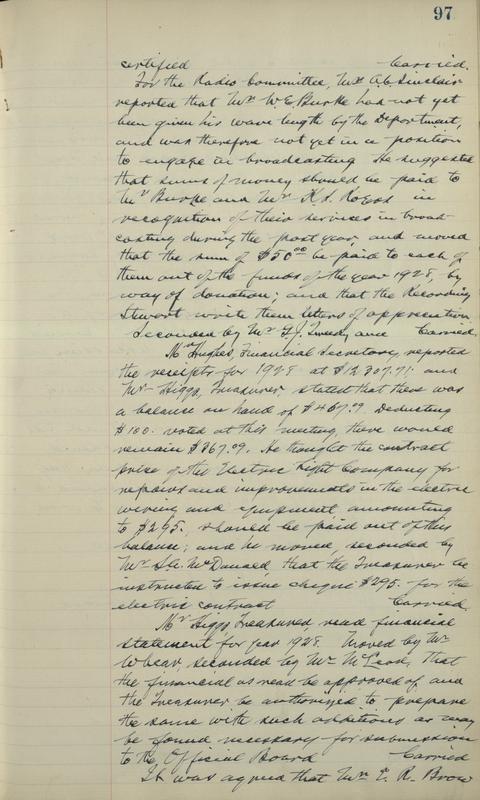 97
certified Carried.
For the Radio Committee, Mr. A.C. Sinclair
reported that Mr W E Burke had not yet
been given his wave length by the Department,
and was therefore not yet in a position
to engage in broadcasting. He suggested
that sums of money should be paid to
Mr Burke and Mr K. S. Rogers in
recognition of their services in broad-
casting during the past year, and moved
that the sum of $50.00 be paid to each of
them out of the funds of the year 1928, by
way of donation; and that the Recording
Steward write them letters of appreciation
Seconded by Mr Carried.
Mr Hughes, Financial Secretary, reported
the receipts for 1928 at $12807.71. and
Mr. Higgs, Treasurer, stated that there was
a balance on hand of $467.09. Deducting
$100. voted at this meeting, there would
remain $367.09. He thought the contract
price of the Electric Light Company for
repairs and improvements in the electric
wiring and equipment amounting
to $295. should be paid out of this
balance; and he moved, seconded by
Mr McDonald that the Treasurer be
instructed to issue cheque $295. for the
electric contract Carried.
Mr Higgs Treasurer read financial
statement for year 1928. Moved by Mr
Wbear, seconded by Mr McLeod, That
the financial as read be approved of, and
the Treasurer be authorized to prepare
the same with such additions as may
be found necessary for submission
to the Official Board Carried
It was agreed that Mr E. R. Brow